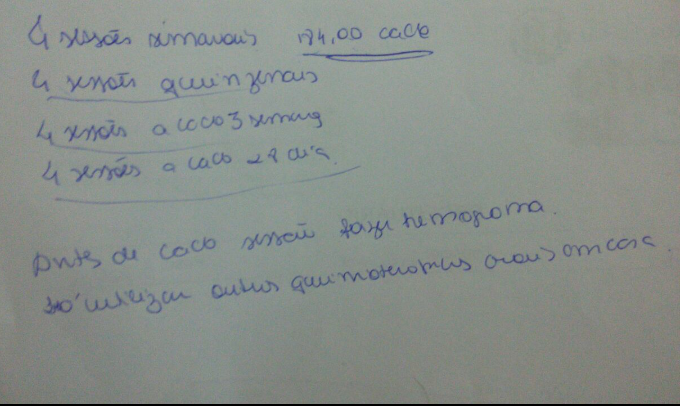 4 sessões semanais 174,00 cada
4 sessões quinzenais
4 sessões a cada 3 semanas
4 sessões a cada 28 dia
Antes de cada sessão fazer hemograma.
utilizar outros quimioterapicos orais em casa